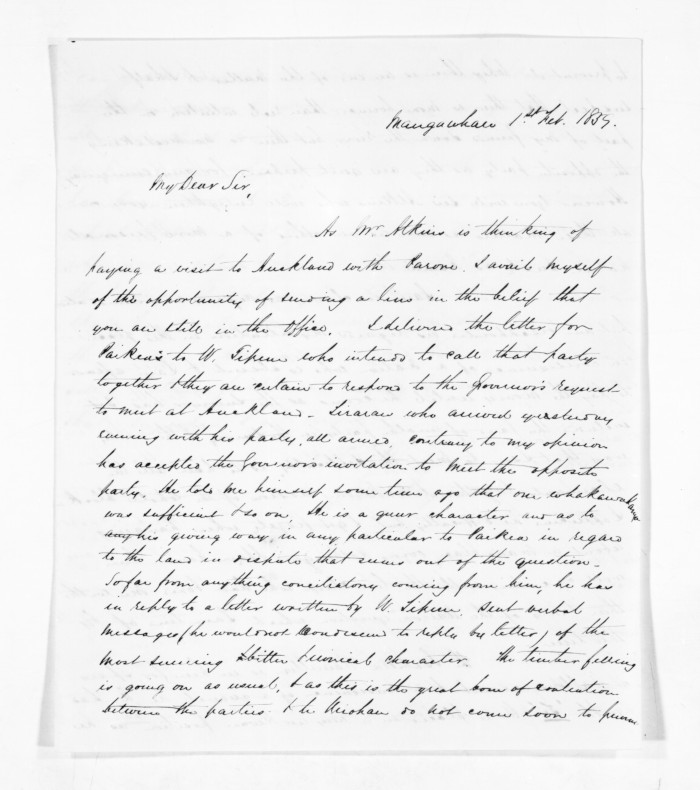 Mangawhare 1st Feb. 185
My Dear Sir,
As Mr. Atkins is thinking of
paying a visit to Auckland with Parone I avail myself
of the opportunity of sending a line in the belief that
you are still in the Office. I delivered the letter for
Paikea's to W. Tipene who intends to call that party
together & they are certain to respond to the Governor's request
to meet at Auckland - Tirarau who arrived yesterday
evening with his party, all armed, contrary to my opinion
has accepted the Governor's invitation to meet the opposite
party. He told me himself some time ago that one whakawakanga
was sufficient & so on. He is a queer character and as to
any his giving way, in any particular to Paikea in regard
to the land in dispute that seems out of the question -
So far from anything conciliatory coming from him, he has
in reply to a letter written by W. Tipene, sent verbal
messages (he would not condescend to reply by letter) of the
most sneering & bitter & ironical character. The timber felling
is going on as usual, & as this is the great bone of contention
between the parties & the do not come soon to